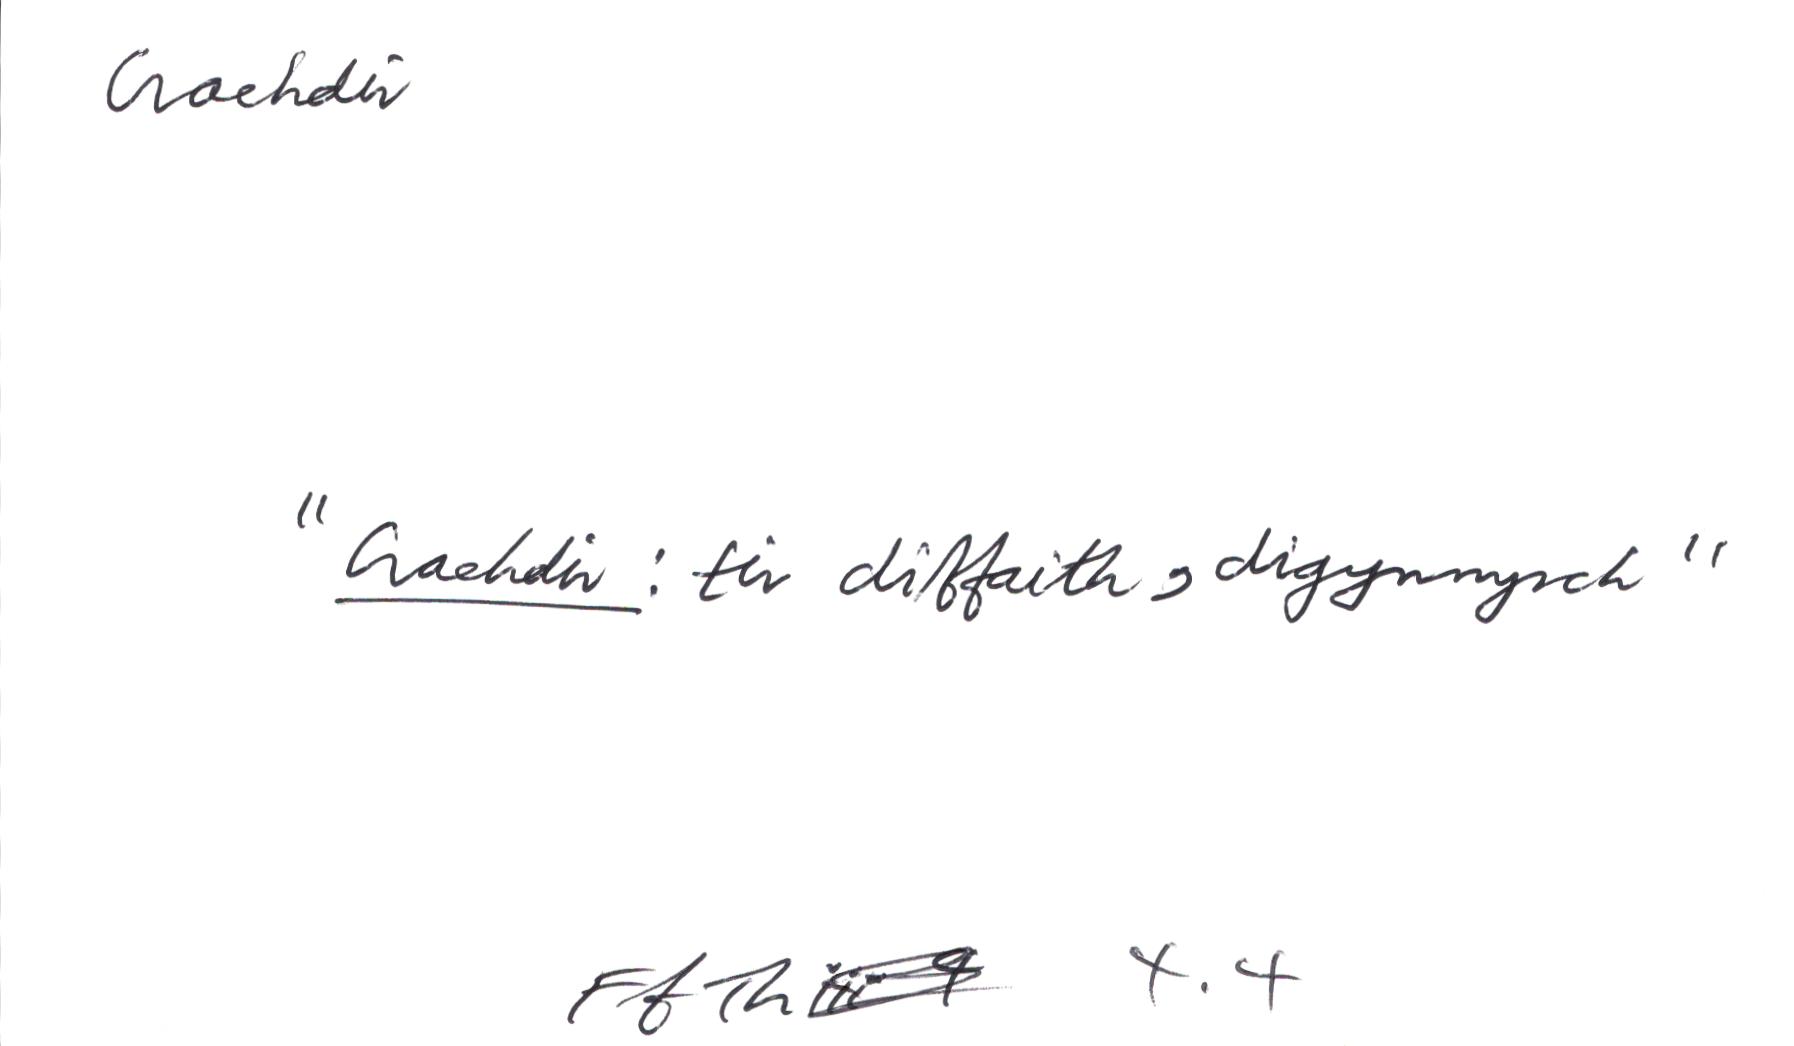 Crachdir
"Crachdir: tir diffaith, digynnyrch"
Ff Th 4.4